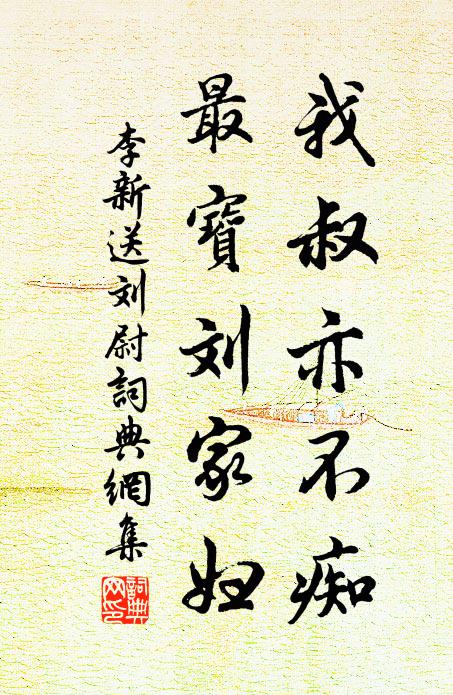 我叔亦不痴
最寶刘家妞
李新送刘尉詞典網集
詞典網印